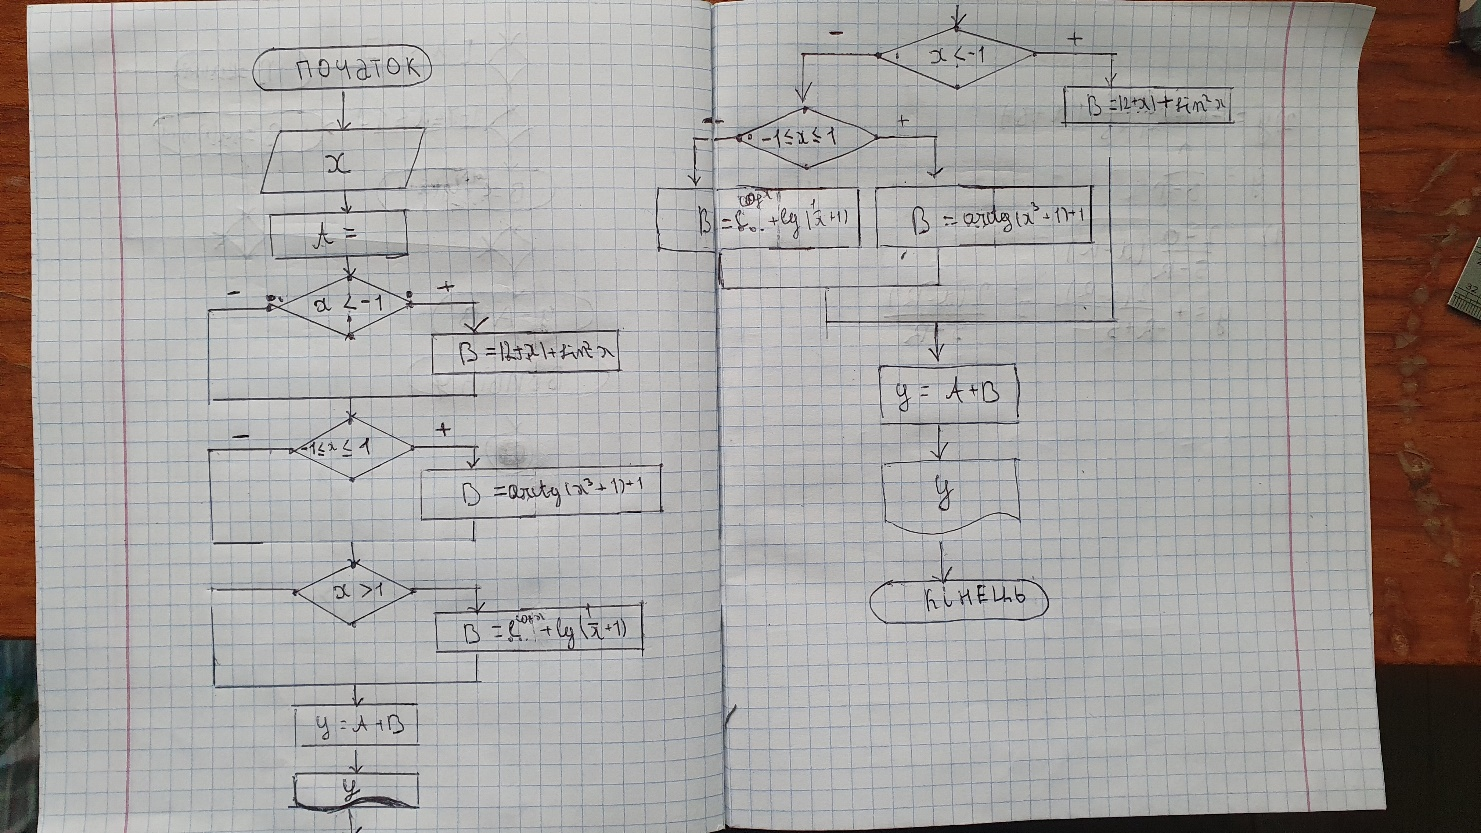 ПОЧАТОК
x
A =
x < -1
- +
B = |2+x| + sin² x
-1 ≤ x ≤ 1
- +
B = arctg(x³ + 1) + 1
x > 1
B = + lg(1/x + 1)
y = A + B
y
x < -1
- +
B = |2+x| + sin² x
-1 ≤ x ≤ 1
- +
B = + lg(1/x + 1)
B = arctg(x³ + 1) + 1
y = A + B
y
КІНЕЦЬ